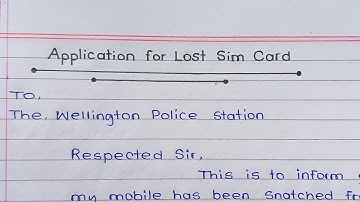 Application for Lost Sim Card
To,
The, Wellington Police Station
Respected Sir,
This is to inform
my mobile has been snatched